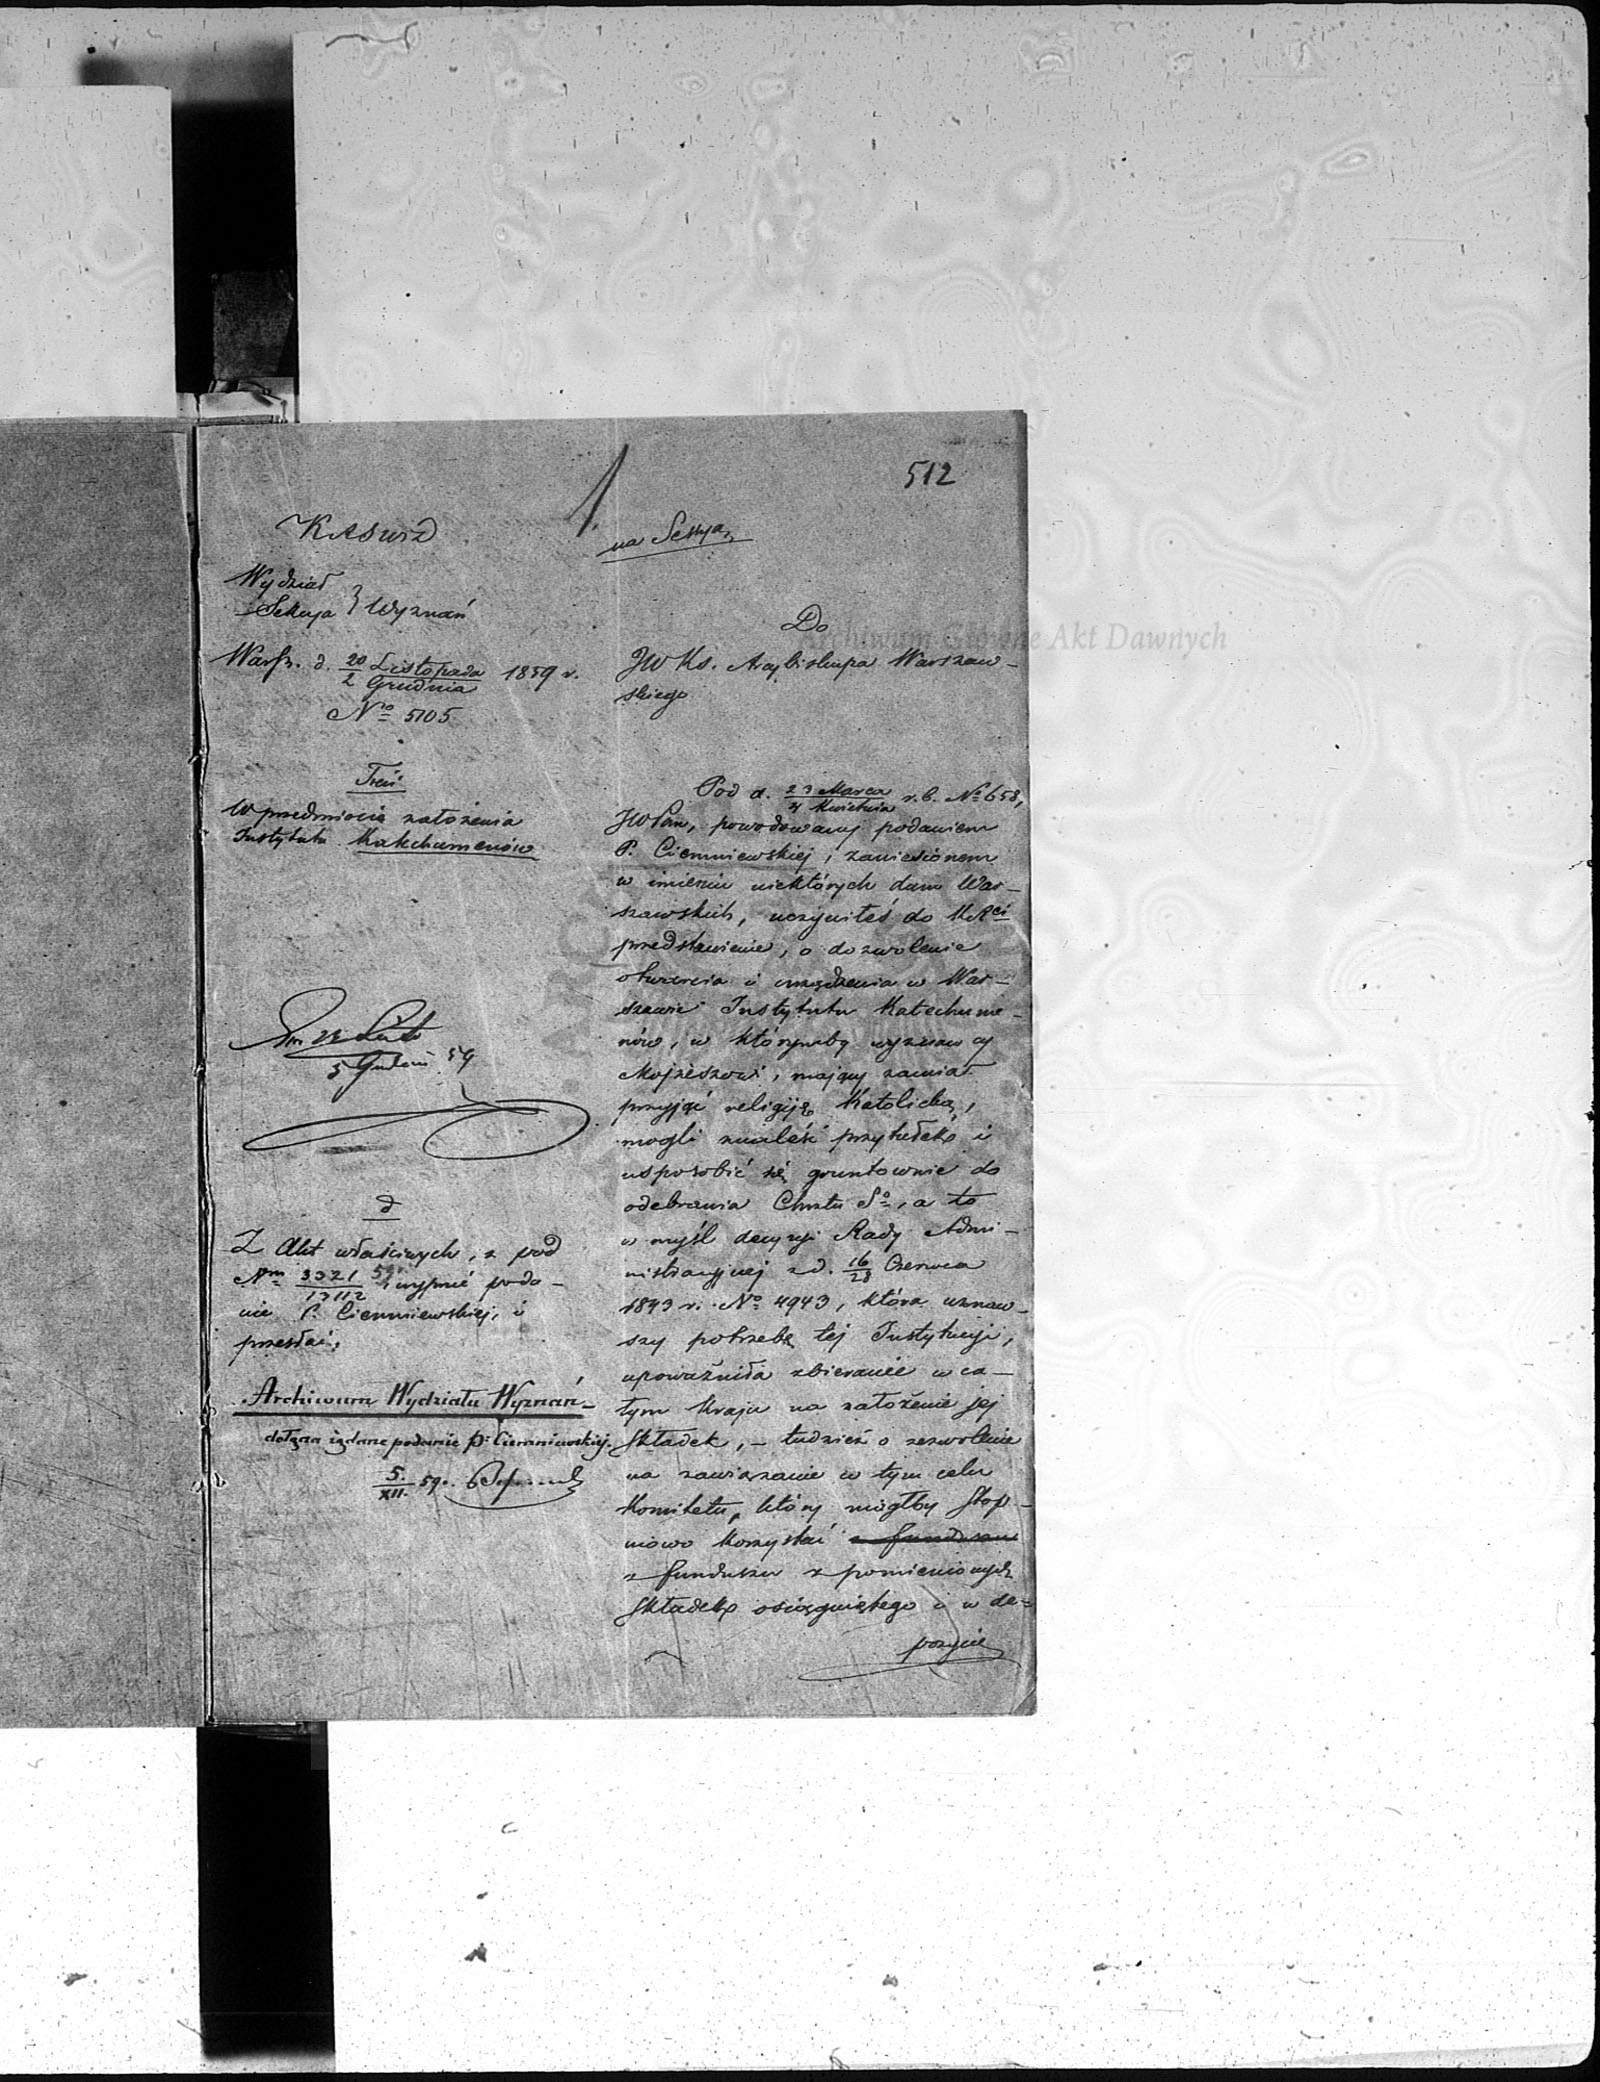 512
1.
na Sessyą
KRSWiD
Wydział
Sekcya } Wyznań
Warsz. d. 20 Listopada / 2 Grudnia 1859 r.
No 5105
Treść
W przedmiocie założenia
Instytutu Katechumenów
5 Grudnia 59
d
Z Akt właściwych, z pod
Nm 3321/13112 59 wyjmić poda-
nie P. Ciemniewskiej, i
przesłać,
Archiwum Wydziału Wyznań
dołącza żądane podanie P. Ciemniewskiej.
5./XII. 59.
Do
Archiwum Główne Akt Dawnych
JW Ks. Arcybiskupa Warszaw-
skiego
Pod d. 23 Marca / 4 Kwietnia r. b. No 658,
JWPan, powodowany podaniem
P. Ciemniewskiej, zaniesionem
w imieniu niektórych dam War-
szawskich, uczyniłeś do KRci
przedstawienie, o dozwolenie
otwarcia i urządzenia w War-
szawie Instytutu Katechume-
nów, w którymby wyznawcy
Mojżeszowi, mający zamiar
przyjąć religiję Katolicką,
mogli znaleść przytułek i
usposobić się gruntownie do
odebrania Chrztu So, a to
w myśl decyzyi Rady Admi-
nistracyjnej z d. 16/28 Czerwca
1843 r. No 4943, która uznaw-
szy potrzebę tej Instytucyi,
upoważniła zbieranie w ca-
łym Kraju na założenie jej
składek, – tudzież o zezwolenie
na zawiązanie w tym celu
Komitetu, który mógłby stop-
niowo korzystać z funduszu
z funduszu z pomienionych
składek osiągniętego i w de-
pozycie